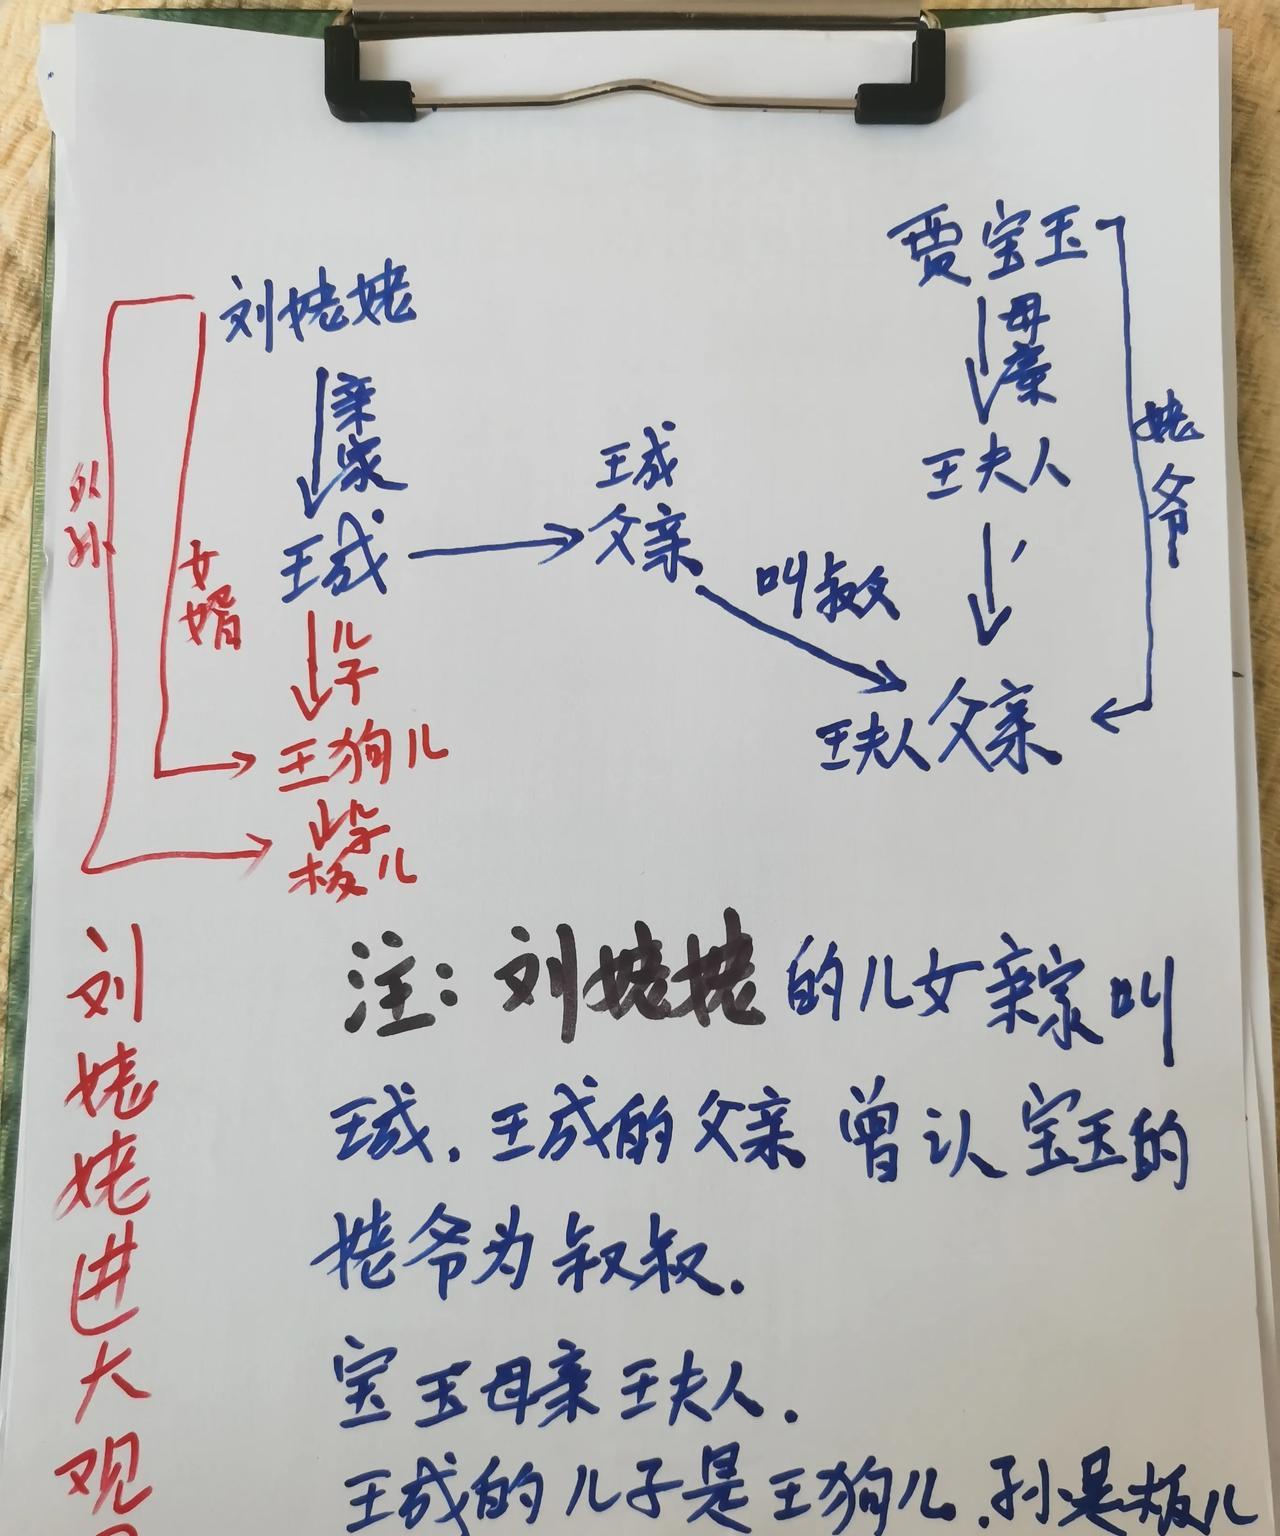 贾宝玉
刘姥姥
母亲
亲家
姥爷
王成
父亲
王夫人
外孙
女婿
王成
叫叔父
儿子
王夫人父亲
王狗儿
儿子
板儿
刘姥姥进大观
注：刘姥姥的儿女亲家叫
王成．王成的父亲曾认宝玉的
姥爷为叔叔．
宝玉母亲王夫人．
王成的儿子是王狗儿．孙是板儿